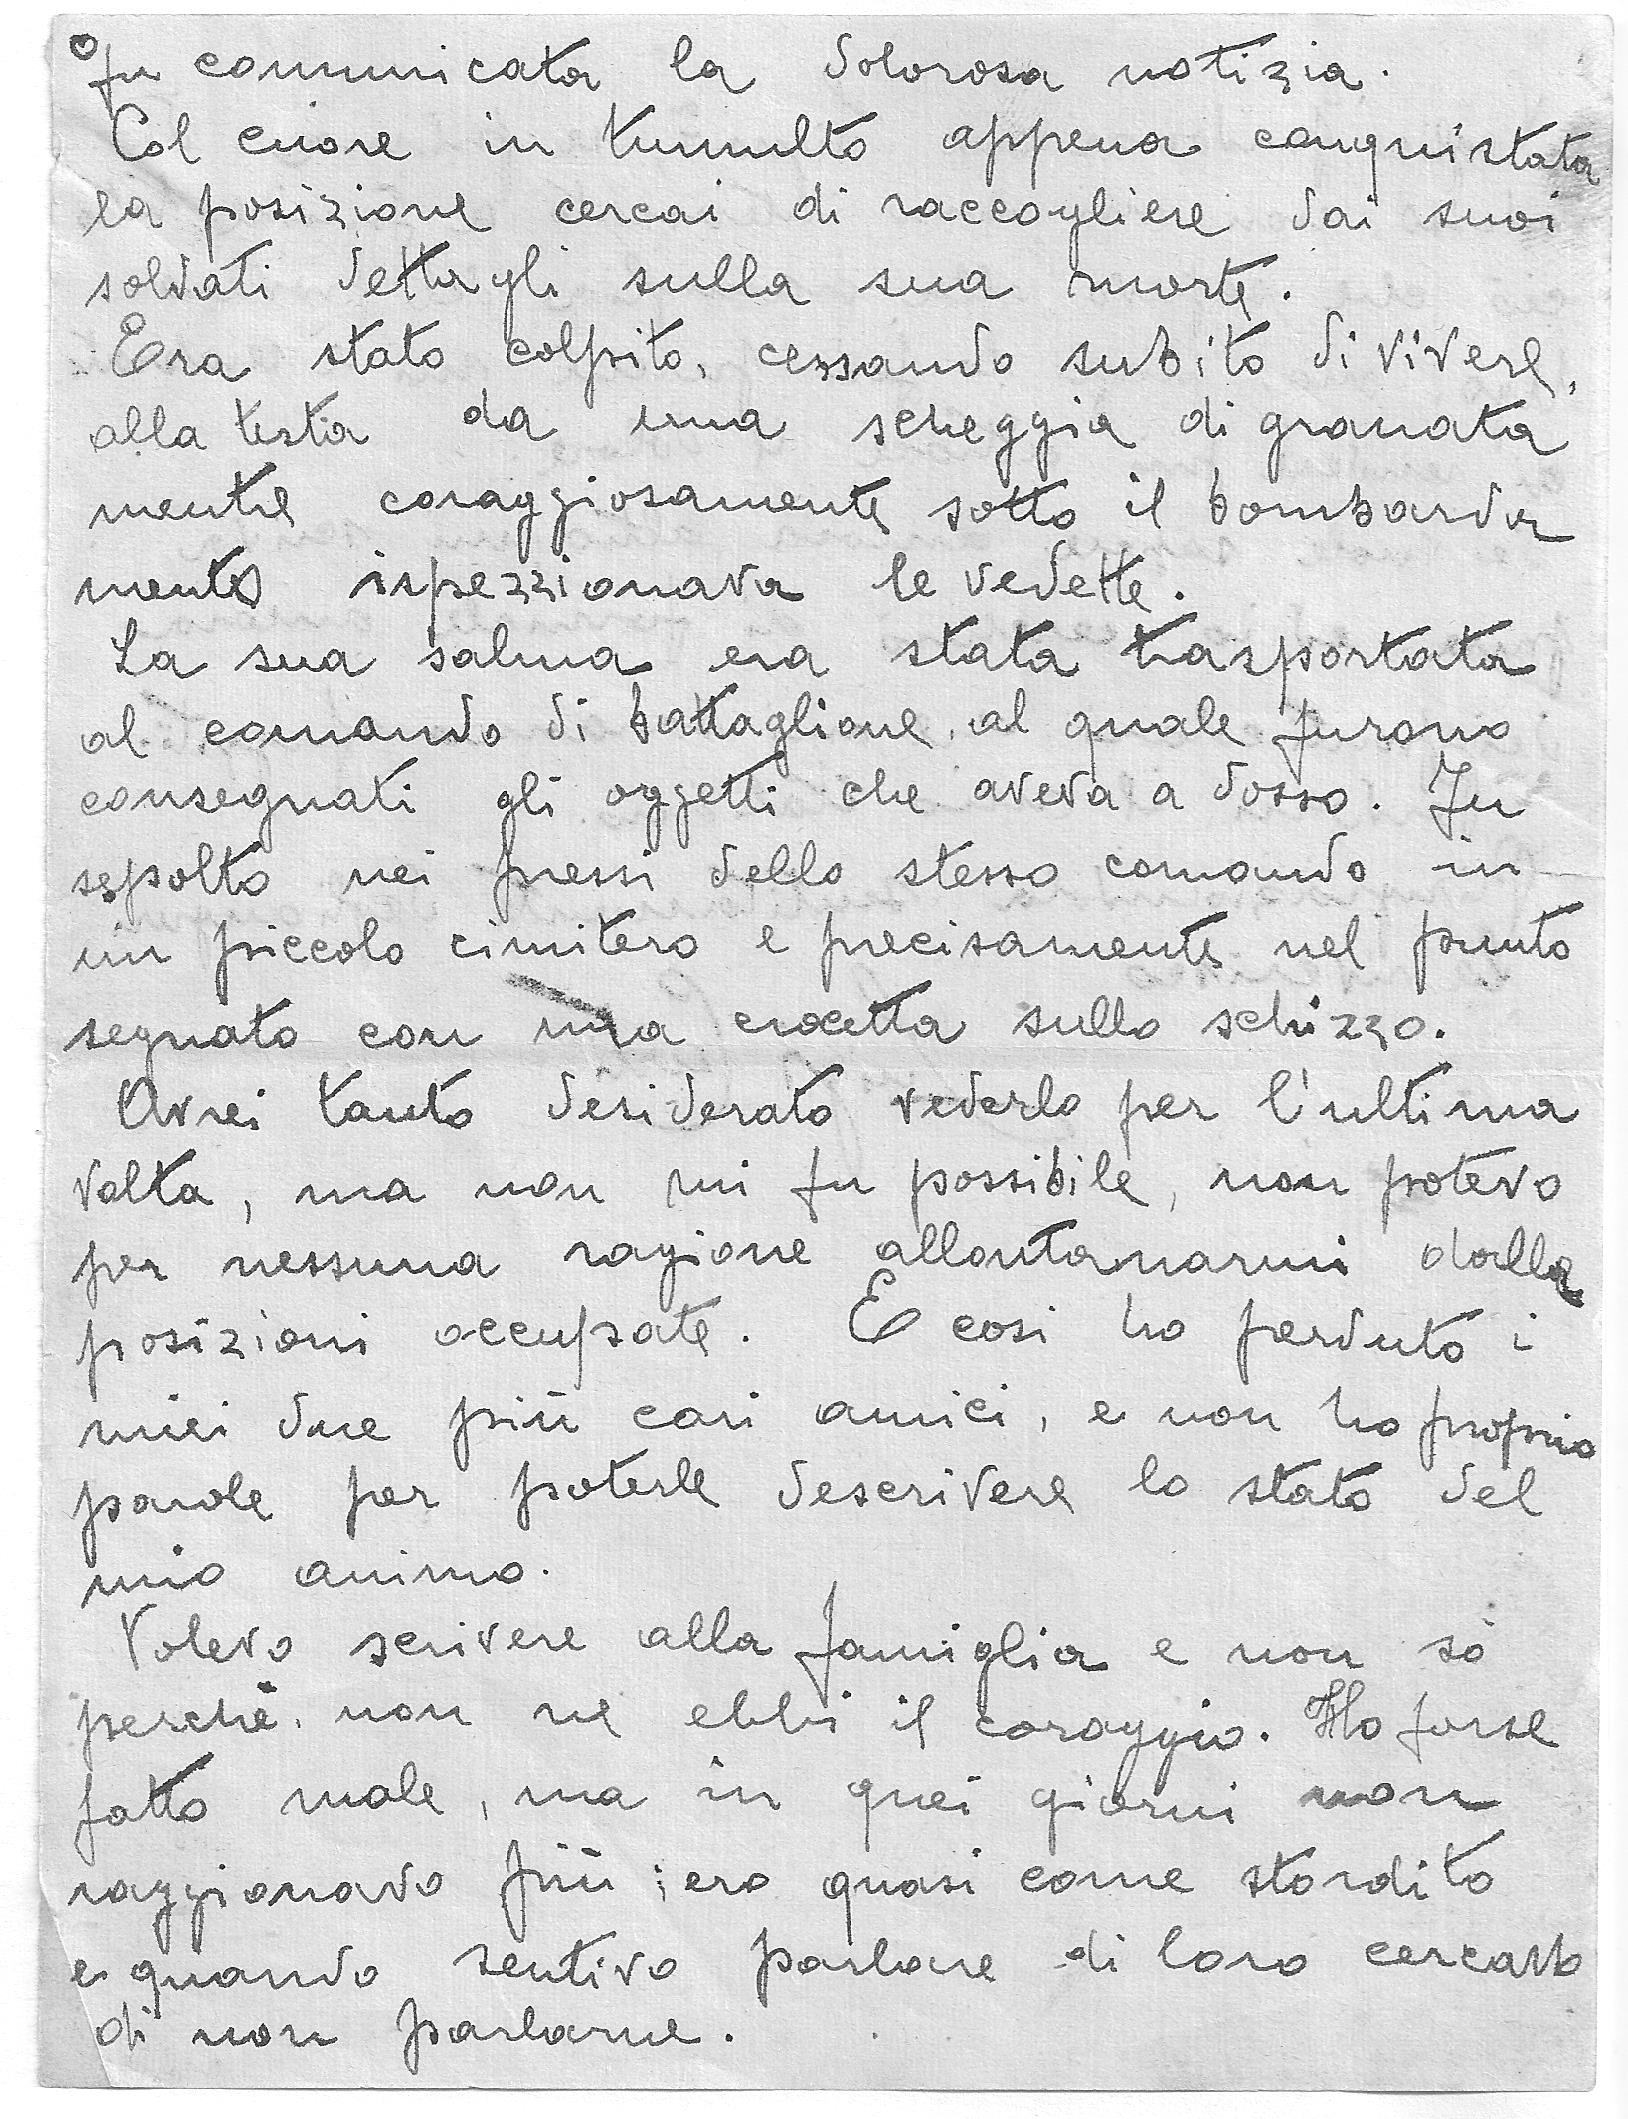 fu comunicata la dolorosa notizia.
Col cuore in tumulto appena conquistata
la posizione cercai di raccogliere dai suoi
soldati dettagli sulla sua morte.
Era stato colpito, cessando subito di vivere,
alla testa da una scheggia di granata
mentre coraggiosamente sotto il bombarda
mento ispezzionava le vedette.
La sua salma era stata trasportata
al comando di battaglione, al quale furono
consegnati gli oggetti che aveva a dosso. Fu
sepolto nei pressi dello stesso comando in
un piccolo cimitero e precisamente nel punto
segnato con una crocetta sullo schizzo.
Avrei tanto desiderato vederlo per l'ultima
volta, ma non mi fu possibile, non potevo
per nessuna ragione allontanarmi dalle
posizioni occupate. E cosi ho perduto i
miei due più cari amici, e non ho proprio
parole per poterle descrivere lo stato del
mio animo.
Volevo scrivere alla famiglia e non sò
perchè, non ne ebbi il coraggio. Ho forse
fatto male, ma in quei giorni non
raggionavo più; ero quasi come stordito
e quando sentivo parlare di loro cercavo
di non parlarne.